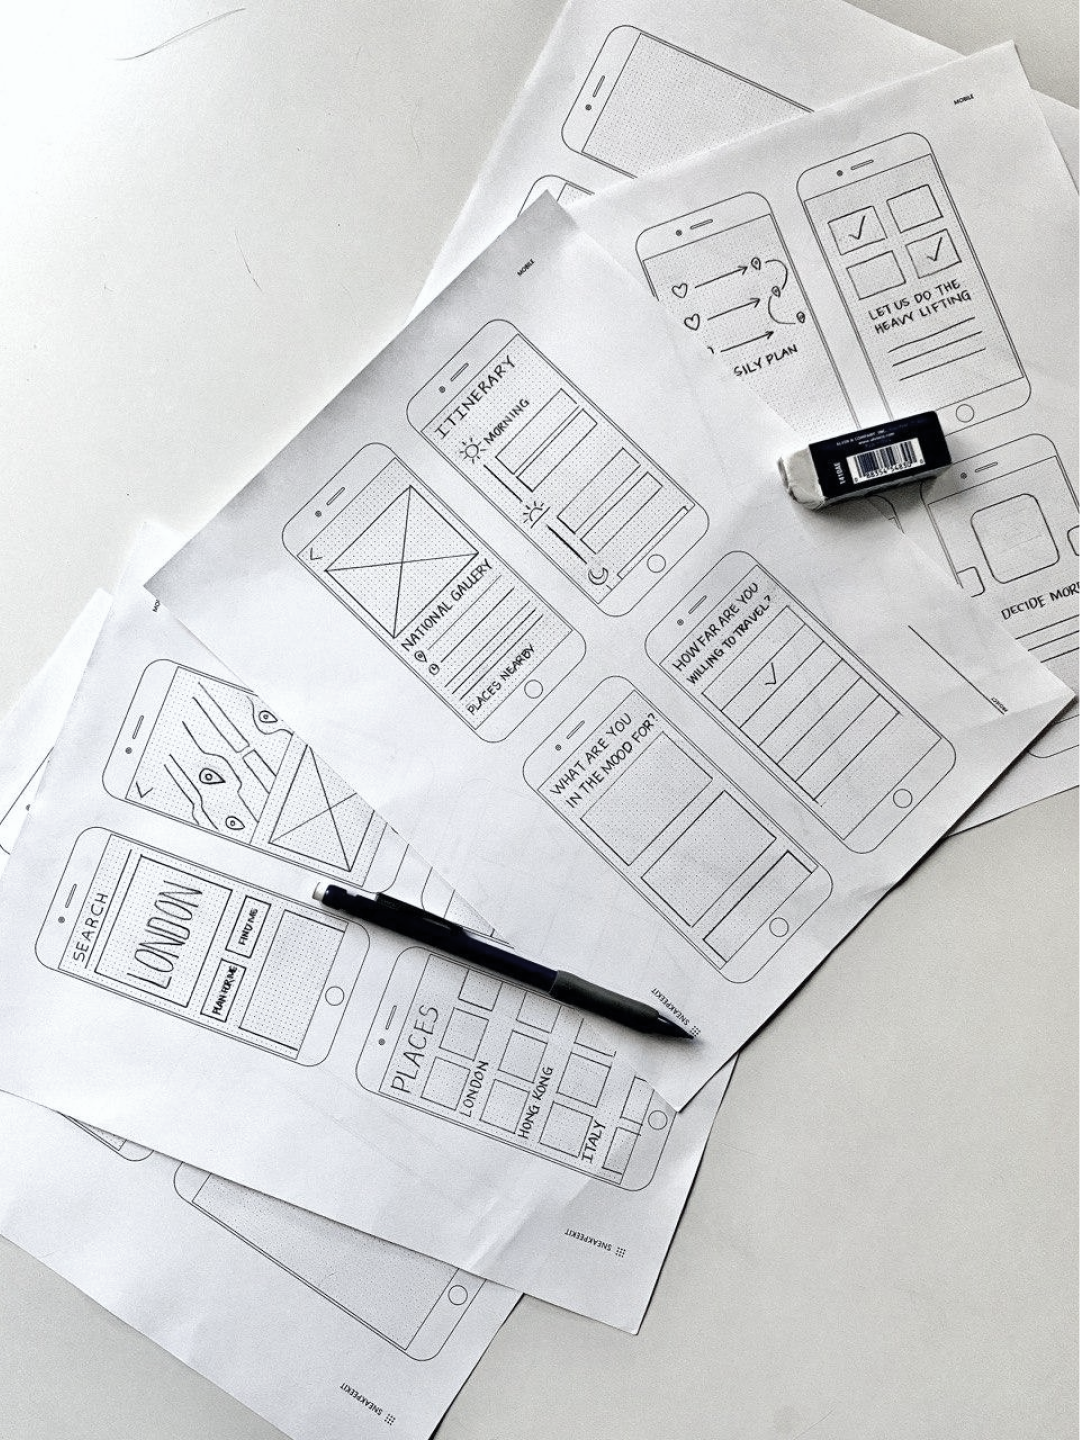 MOBILE
LET US DO THE
HEAVY LIFTING
SILY PLAN
MOBILE
ITINERARY
MORNING
NATIONAL GALLERY
PLACES NEARBY
HOW FAR ARE YOU
WILLING TO TRAVEL?
WHAT ARE YOU
IN THE MOOD FOR?
DECIDE MOR
SEARCH
LONDON
FIND ME
PLAN FOR ME
PLACES
LONDON
HONG KONG
ITALY
SNEAKPEEKIT
SNEAKPEEKIT
SNEAKPEEKIT